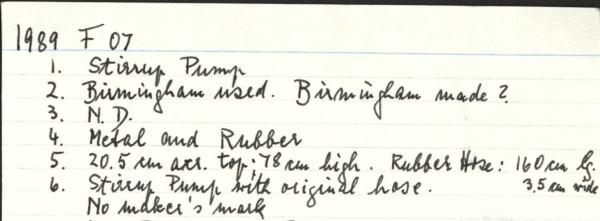 1989 F 07
1. Stirrup Pump
2. Birmingham used. Birmingham made?
3. N.D.
4. Metal and Rubber
5. 20.5 cm acr. top: 78 cm high. Rubber Hose: 160 cm lg.
3.5 cm wide
6. Stirrup Pump with original hose.
No maker's mark